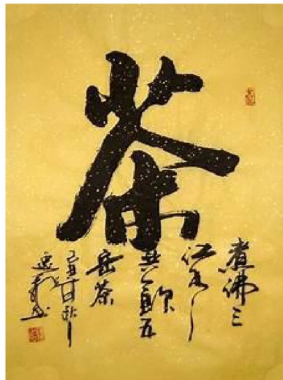 茶
煮沸三
江水
共飲五
岳茶
己丑